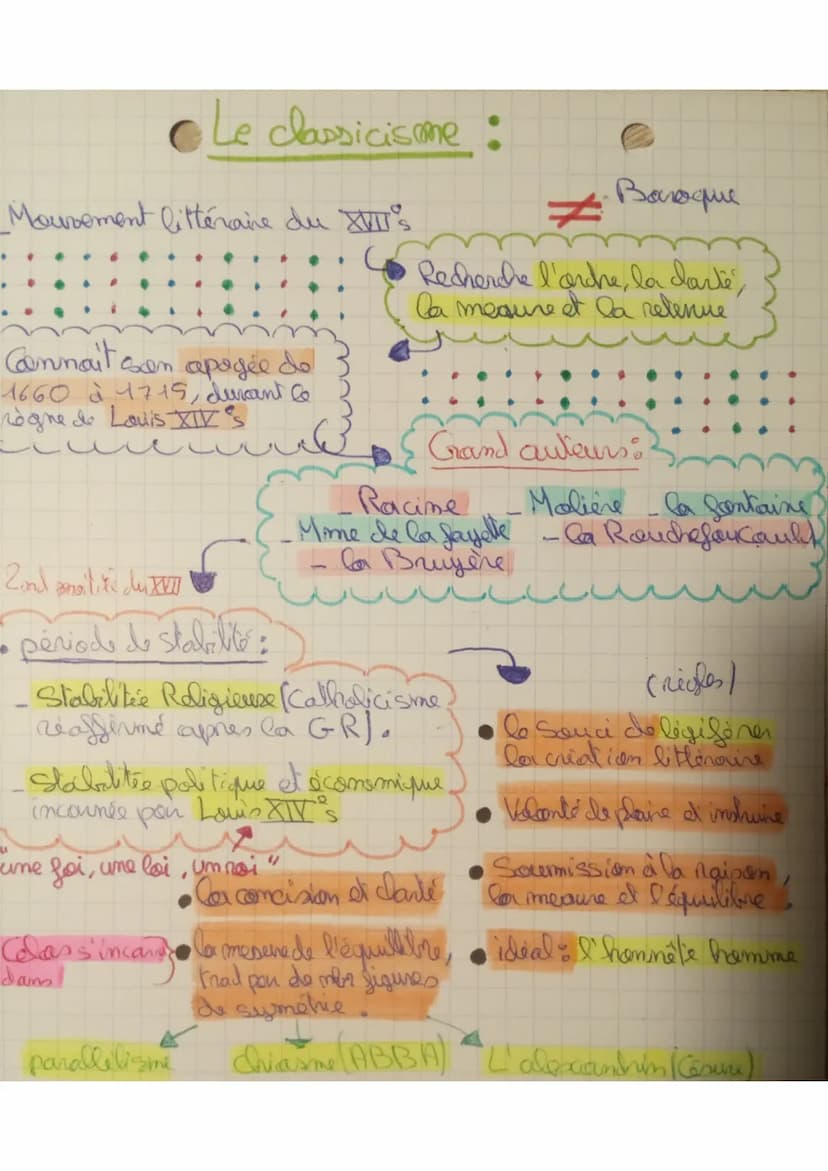 Le classicisme :
≠ Baroque
_Mouvement littéraire du XVII°s
Recherche l'ordre, la clarté,
la mesure et la retenue
Connait son apogée de
1660 à 1715, durant le
règne de Louis XIV°s
Grand auteurs:
_ Racine _ Molière _ la fontaine
_ Mme de la fayette - la Rouchefoucault
- la Bruyère
2nd du XVII
• période de stabilité :
_ Stabilitée Religieuse (Catholicisme
réaffirmé apres la GR).
_ Stabilitée politique et économique
incarnée par Louis XIV°s
"une foi, une loi, un roi"
(règles)
• le souci de légiférer
la création littéraire
• Volonté de plaire et instruire
• Soumission à la raison,
la mesure et l'équilibre.
• idéal : l'honnête homme
Class s'incar
dans
• la concision et clarté
• la mesure de l'équilibre,
trad par de nbr figures
de symétrie.
parallélisme chiasme (ABBA) L'alexandrin (Césure)